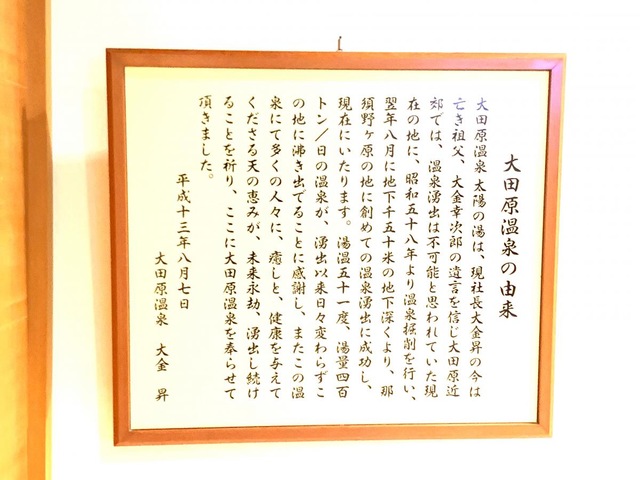 大田原温泉の由来
大田原温泉 太陽の湯は、現社長大金昇の今は
亡き祖父、大金幸次郎の遺言を信じ大田原近
郊では、温泉湧出は不可能と思われていた現
在の地に、昭和五十八年より温泉掘削を行い、
翌年八月に地下千五十米の地下深くより、那
須野ヶ原の地に創めての温泉湧出に成功し、
現在にいたります。湯温五十一度、湯量四百
トン/日の温泉が、湧出以来日々変わらずこ
の地に沸き出でることに感謝し、またこの温
泉にて多くの人々に、癒しと、健康を与えて
くださる天の恵みが、未来永劫、湧出し続け
ることを祈り、ここに大田原温泉を奉らせて
頂きました。
平成十三年八月七日
大田原温泉 大金 昇